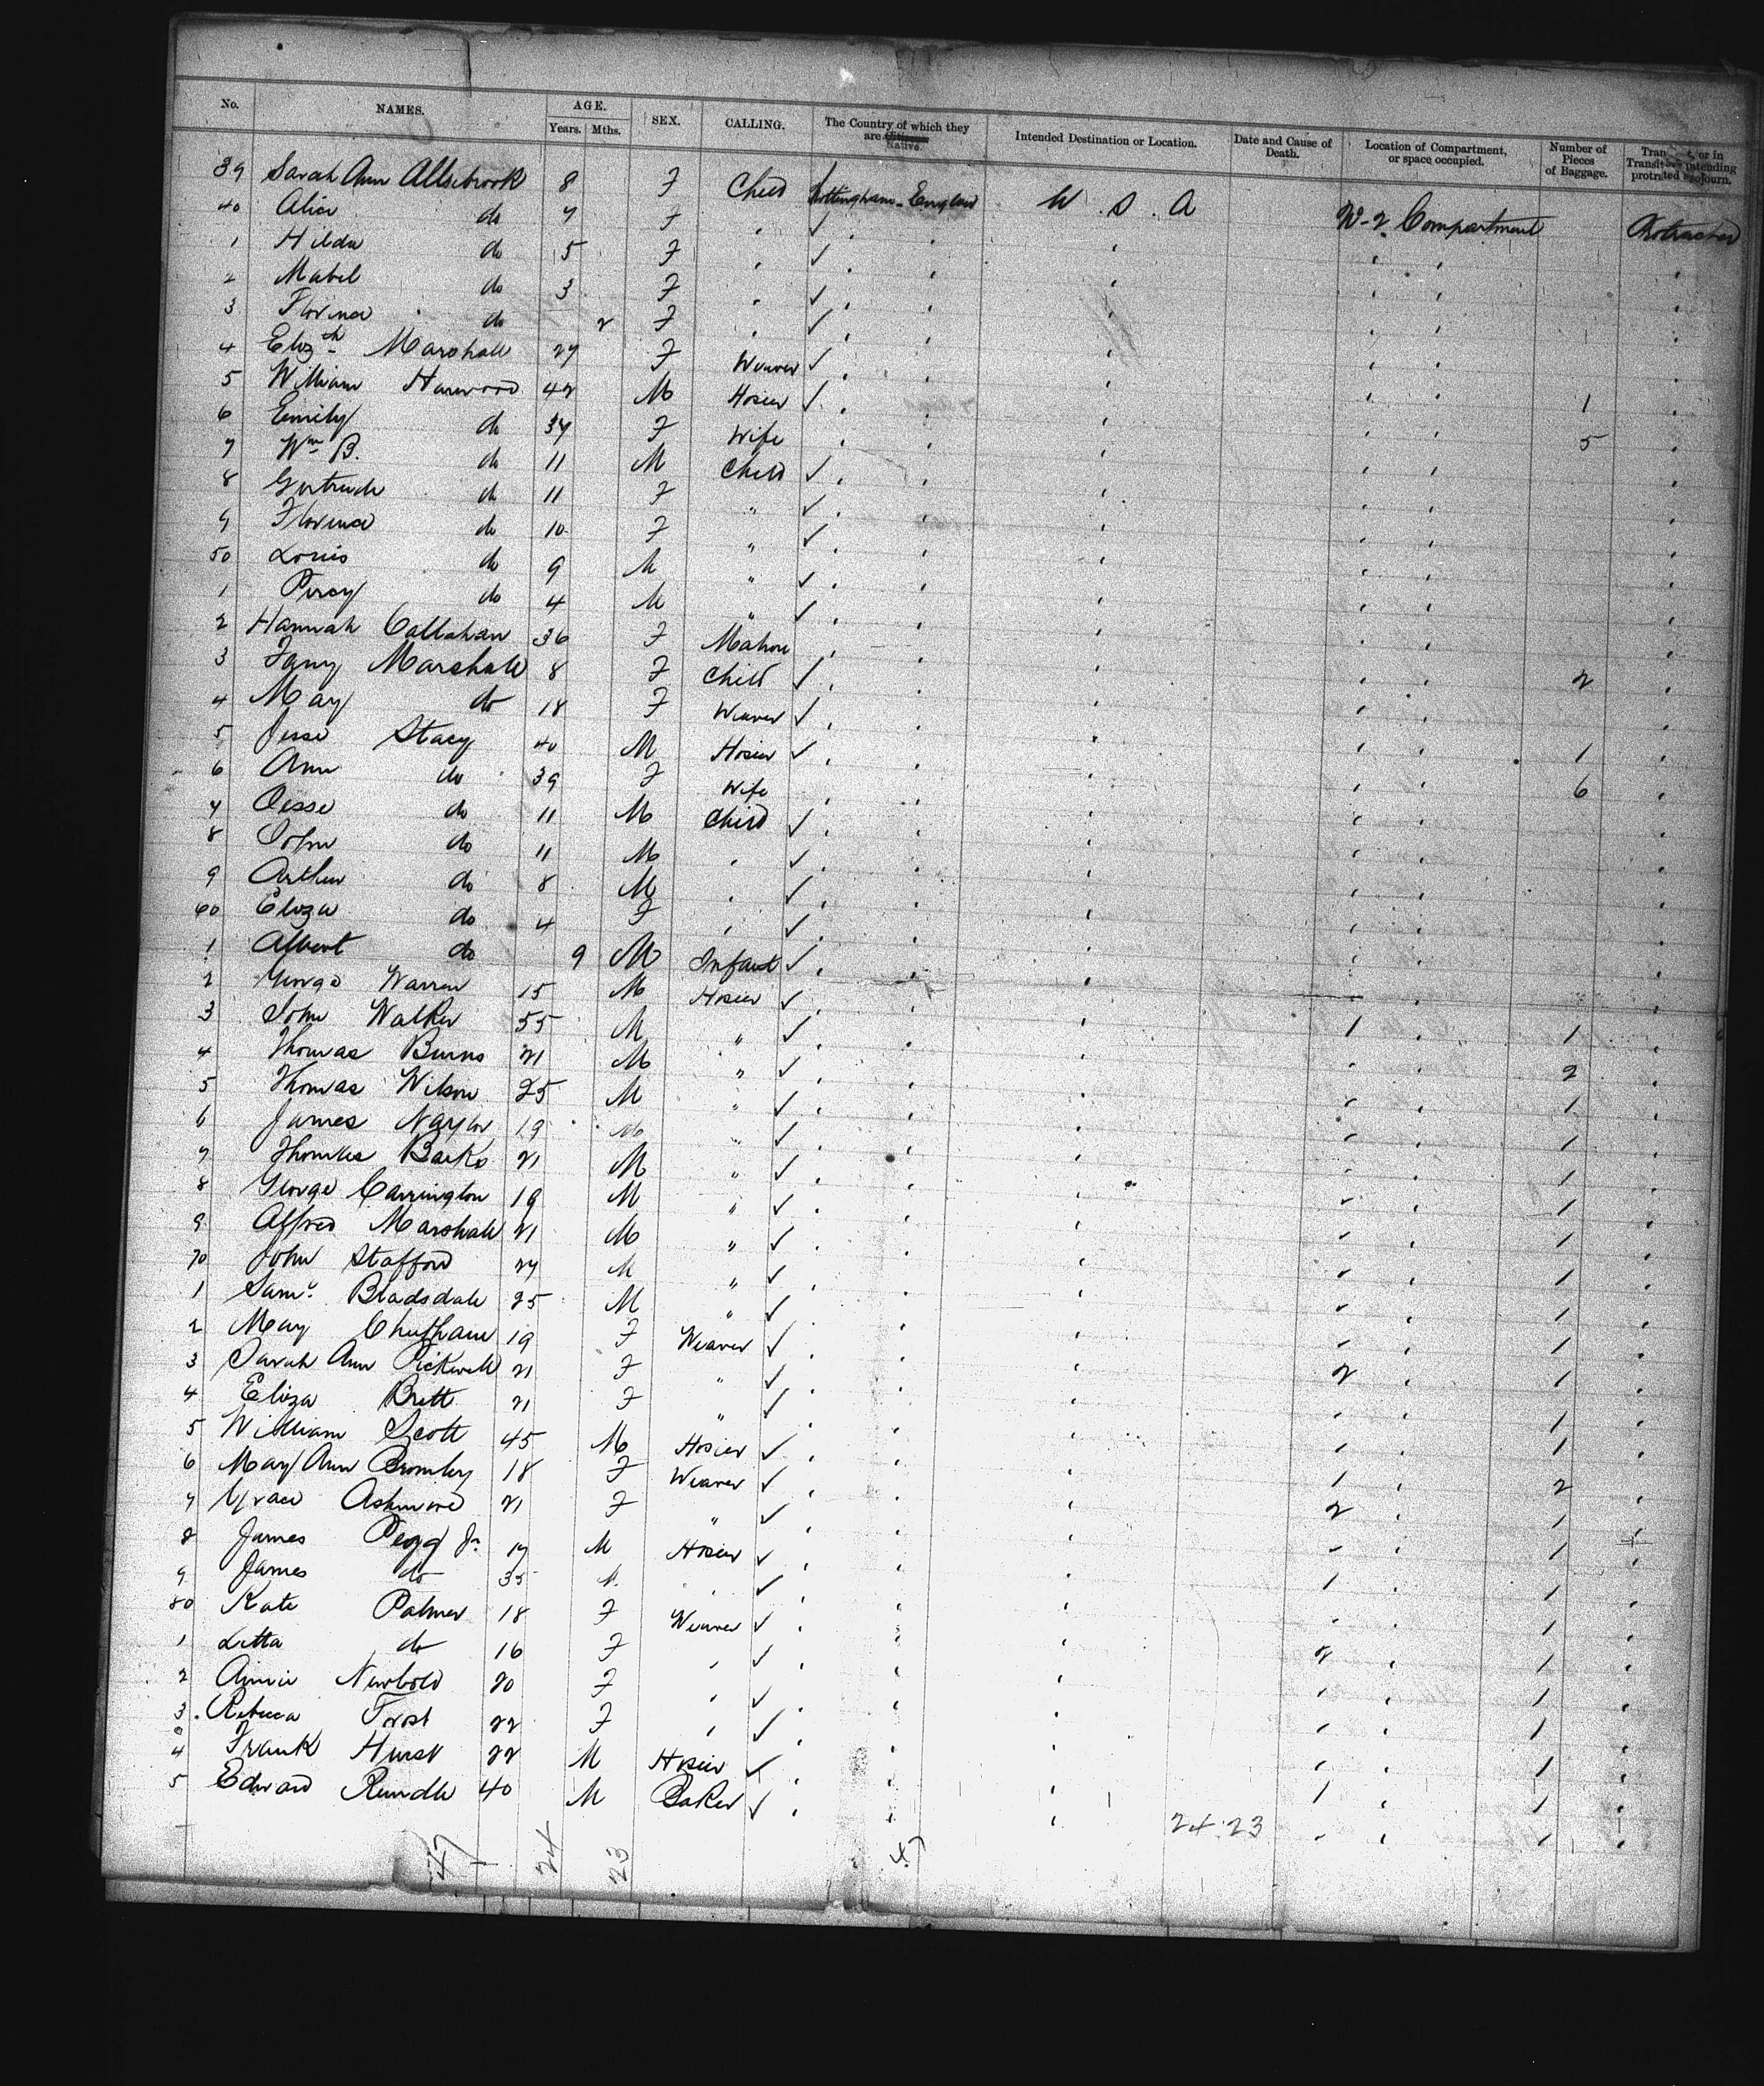 No. NAMES. AGE. Years. Mths. SEX. CALLING. The Country of which they are Citizens Native. Intended Destination or Location. Date and Cause of Death. Location of Compartment, or space occupied. Number of Pieces of Baggage. Transit, or in intending protracted sojourn.
39 Sarah Ann Allsebrook 8 F Child Nottingham - England U.S.A W-2 Compartment Protracted
40 Alice do 7 F " ✓
1 Hilda do 5 F " ✓
2 Mabel do 3 F " ✓
3 Florence do 2 F " ✓
4 Elizth Marshall 27 F Weaver ✓
5 William Harwood 42 M Hosier ✓ 1
6 Emily do 37 F Wife 5
7 Wm B. do 11 M Child ✓
8 Gertrude do 11 F " ✓
9 Florence do 10 F " ✓
50 Louis do 9 M " ✓
1 Percy do 4 M " ✓
2 Hannah Callahan 36 F
3 Fanny Marshall 8 F Child ✓ 2
4 May do 18 F Weaver ✓
5 Jesse Stacy 40 M Hosier ✓ 1
6 Ann do 39 F Wife 6
7 Jesse do 11 M Child ✓
8 John do 11 M " ✓
9 Arthur do 8 M " ✓
60 Eliza do 4 F " ✓
1 Albert do 9 M Infant ✓
2 George Warren 15 M Hosier ✓
3 John Walker 55 M " ✓ 1 1
4 Thomas Burns 21 M " ✓ 2
5 Thomas Wilson 25 M " ✓ 1
6 James Naylor 19 M " ✓ 1
7 Thomas Barks 21 M " ✓ 1
8 George Carrington 19 M " ✓ 1
9 Alfred Marshall 21 M " ✓ 1
70 John Stafford 27 M " ✓ 1
1 Saml Bladsdale 25 M " ✓ 1
2 May Cheetham 19 F Weaver ✓ 1
3 Sarah Ann Pickwell 21 F " ✓ 2 1
4 Eliza Brett 21 F " ✓ 1
5 William Scott 45 M Hosier ✓ 1
6 Mary Ann Bromley 18 F Weaver ✓ 1 2
7 Grace Ashmore 21 F " ✓ 2 1
8 James Pegg Jr 17 M Hosier ✓ 1
9 James do 35 M " ✓ 1 1
80 Kate Palmer 18 F Weaver ✓ 1
1 Letta do 16 F " ✓ 2 1
2 Annie Newbold 20 F " ✓ 1
3 Rebecca Frost 22 F " ✓ 1
4 Frank Hurst 22 M Hosier ✓ 1
5 Edward Rundle 40 M Baker ✓ 1 1
24 23 1
47 24 23 47